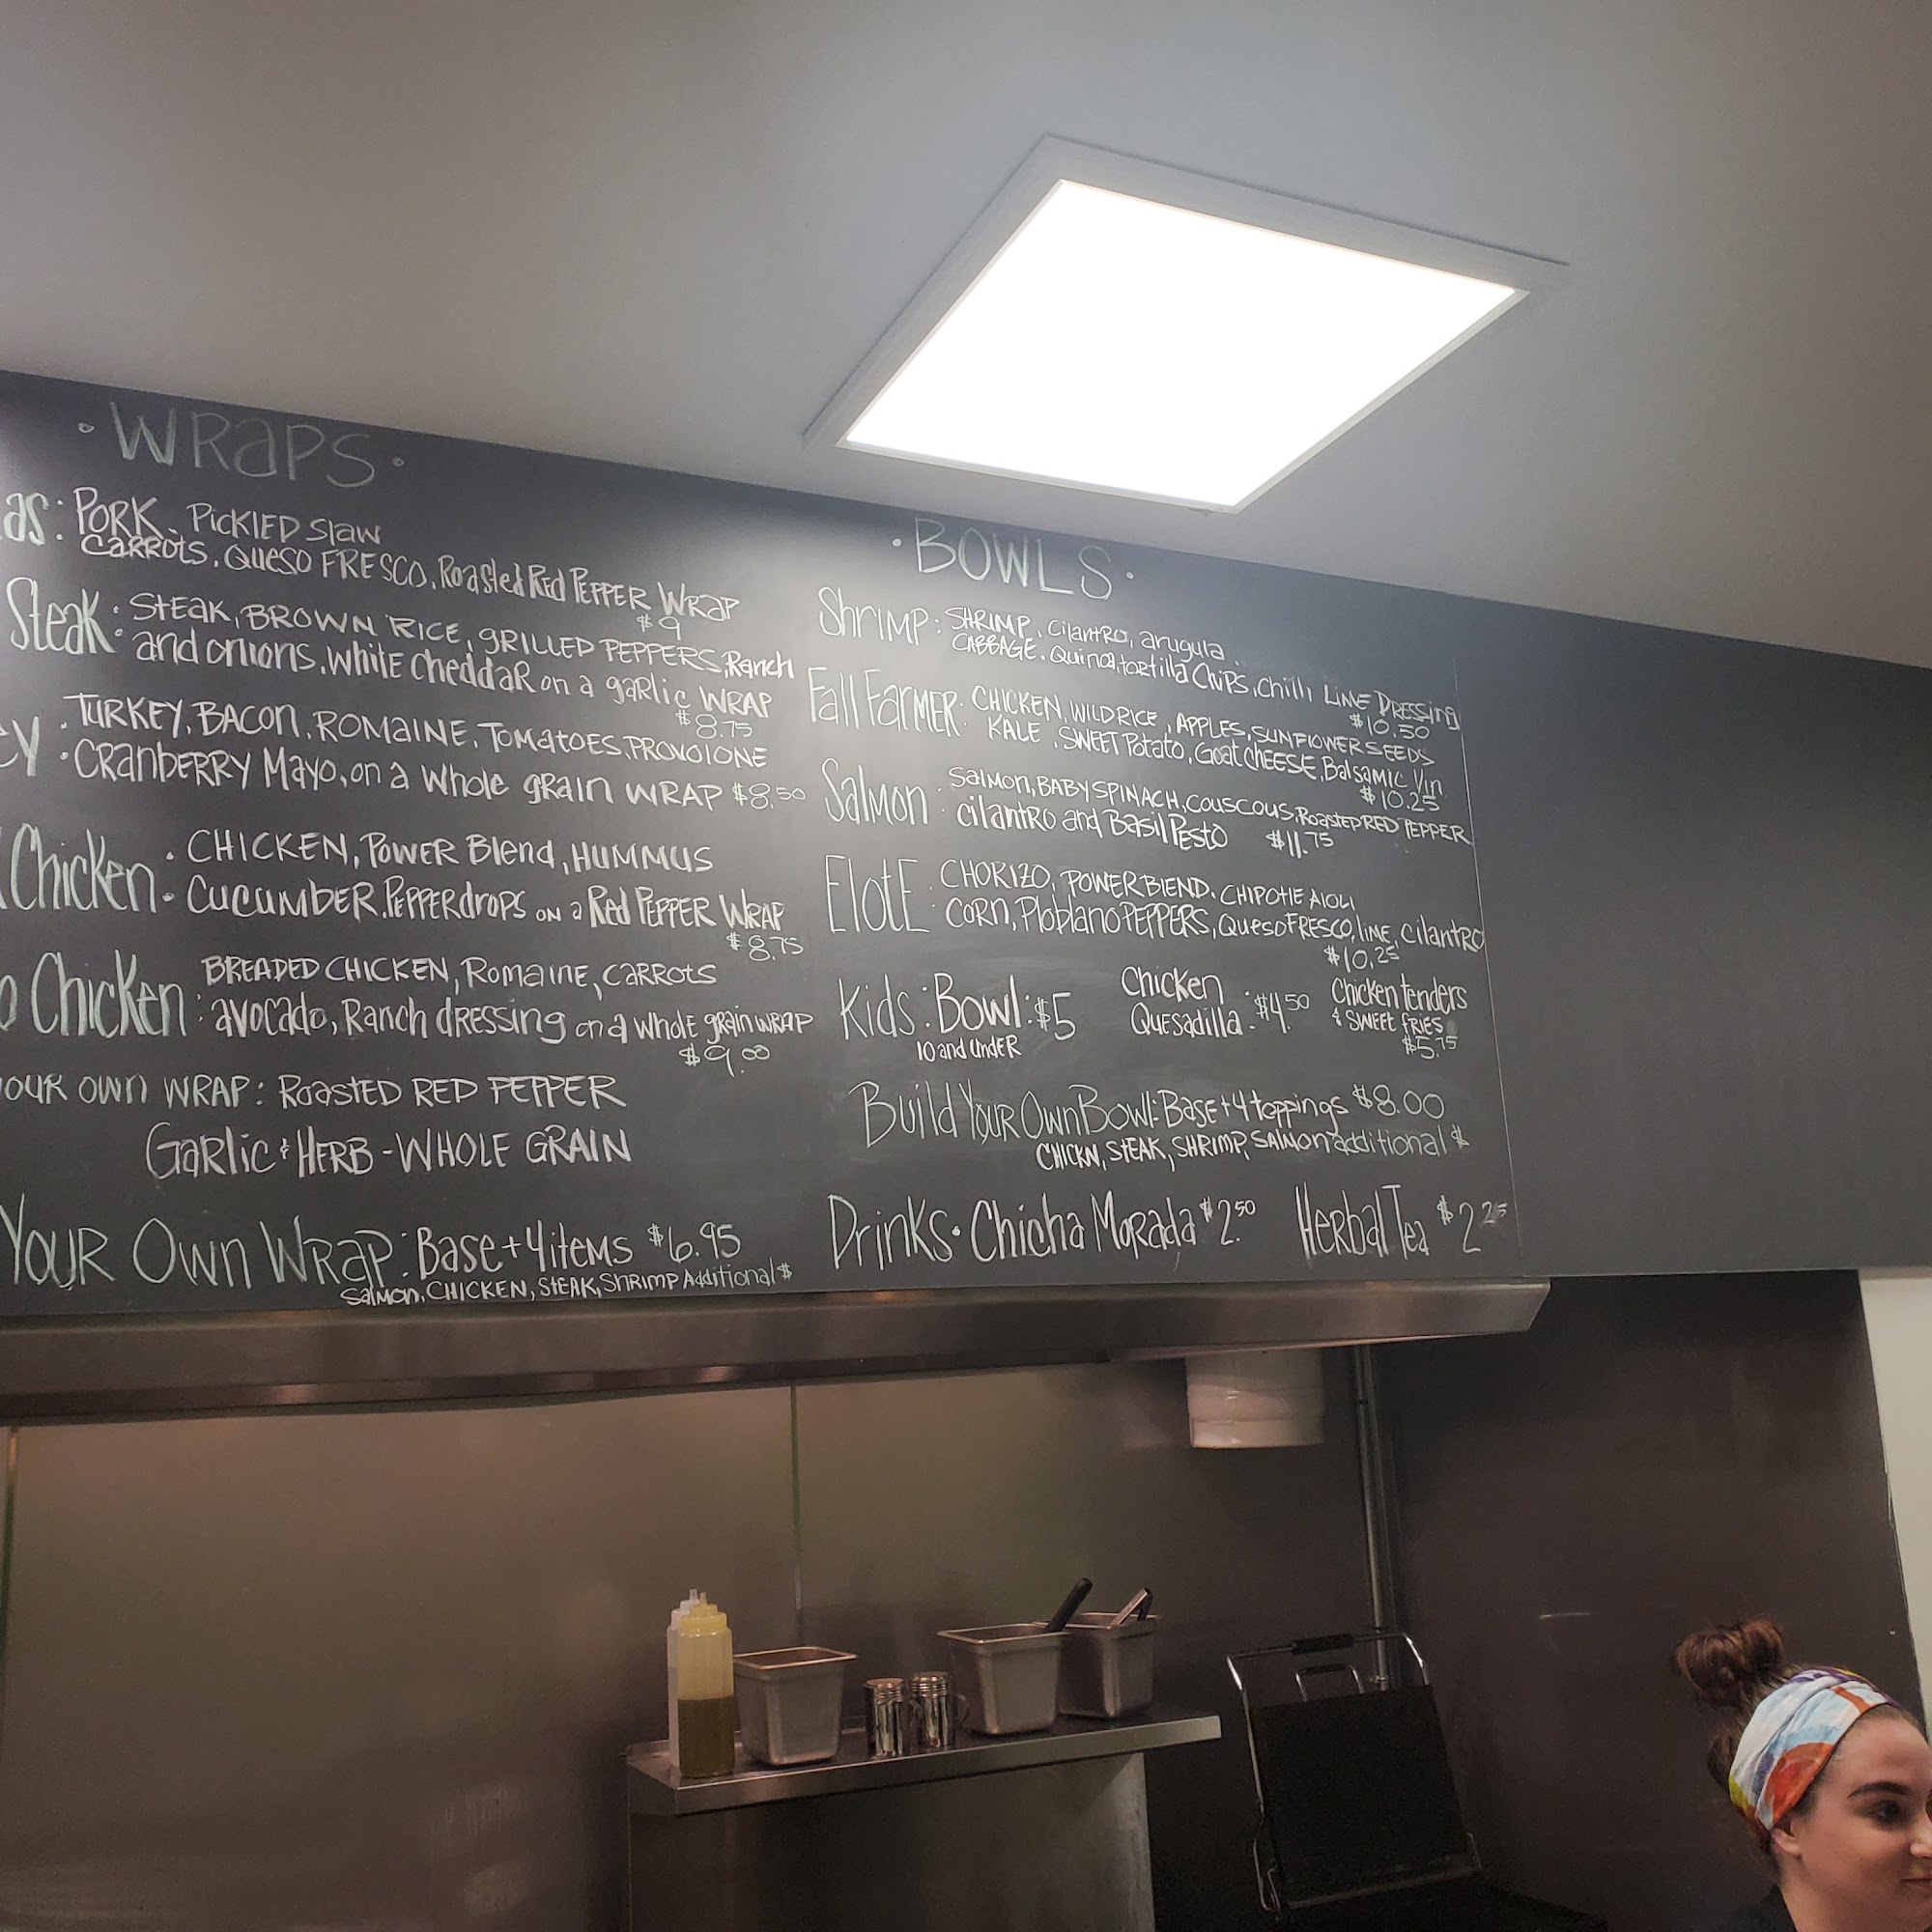 ·WRaPS·
as: PORK, PICKlED Slaw
CARROTS, QUESO FRESCO, Roasted Red PEPPER WRaP
$9
Steak: STEAK, BROWN RICE, GRILLED PEPPERS, Ranch
and onions, White Cheddar on a garlic WRAP
$8.75
ey: TURKEY, BACON, ROMAINE, TOMATOES, PROVOLONE
CRanbERRY Mayo, on a whole grain WRAP $8.50
Chicken: CHICKEN, POWER Blend, HUMMUS
CUCUMBER, PEPPERdrops ON a Red PEPPER WRAP
$8.75
o Chicken: BREADED CHICKEN, Romaine, CARROTS
avocado, Ranch dRESSing on a whole grain WRAP
$9.00
OUR OWN WRAP: ROASTED RED PEPPER
GaRlic & HERB - WHOLE GRAIN
YOUR OWN WRAP: Base + 4 items $6.95
Salmon, CHICKEN, STEAK, SHRIMP Additional $
·BOWLS·
Shrimp: SHRIMP, cilantro, arugula,
CABBAGE, Quinoa, tortilla CHIPS, chilli LIME DRESSing
$10.50
Fall FarMER: CHICKEN, WILD RICE, APPLES, SUNFLOWER SEEDS
KALE, SWEET Potato, Goat CHEESE, Balsamic Vin
$10.25
Salmon: Salmon, BABY SPINACH, COUSCOUS, ROASTED RED PEPPER
cilantro and Basil Pesto $11.75
ElotE: CHORIZO, POWER BLEND, CHIPOTlE AIOLI
CORN, Ploblano PEPPERS, Queso FRESCO, LIME, cilantro
$10.25
Kids: Bowl: $5
10 and under
Chicken
Quesadilla: $4.50
Chicken tenders
& SWEET FRIES
$5.75
Build Your Own Bowl: Base + 4 toppings $8.00
CHICKN, STEAK, SHRIMP, SALMON additional $
Drinks· Chicha Morada $2.50 Herbal Tea $2.25